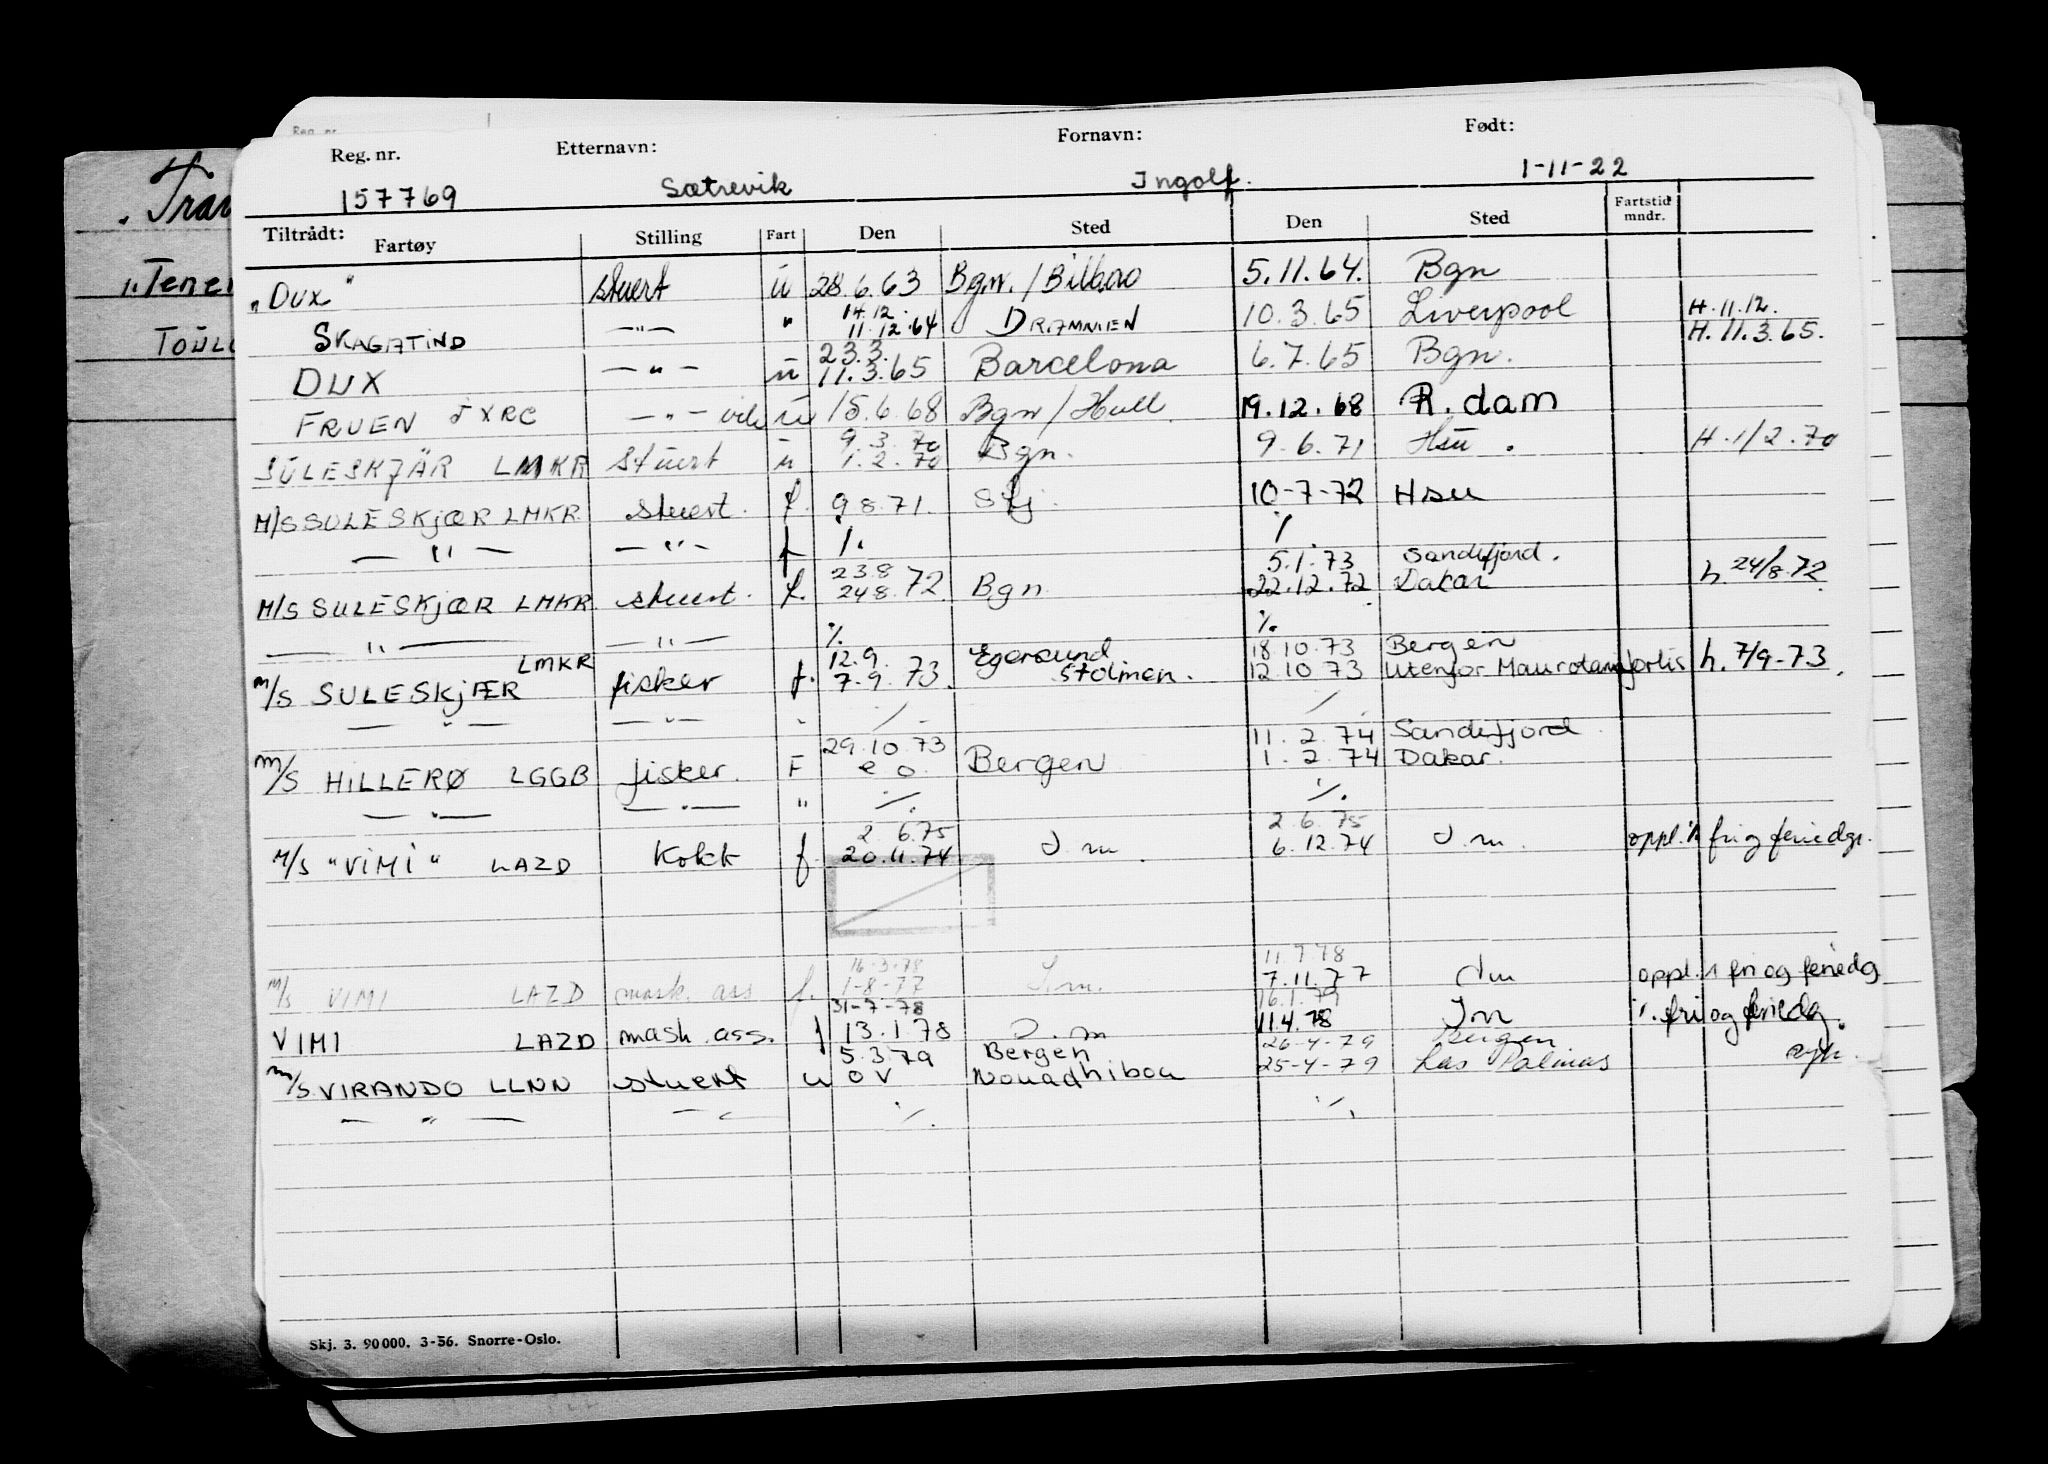 Reg. nr.
Reg. nr. Etternavn: Fornavn: Født:
157769 Sætrevik Ingolf. 1-11-22
Tiltrådt: Fartøy Stilling Fart Den Sted Den Sted Fartstid mndr.
„Tran
„Tener
„Dux" stuert ü 28.6.63 Bgn. / Bilbao 5.11.64. Bgn
14.12. H.11.12.
Toül
SKAGATIND —"— " 11.12.64 DRAMMEN 10.3.65 Liverpool H.11.3.65.
23.3.
DUX —"— ü 11.3.65 Barcelona 6.7.65 Bgn.
FRUEN JXRC —"— vik ü 15.6.68 Bgn / Hull. 19.12.68 R.dam
9.3.70
SULESKJÄR LMKR Stuert ü 1.2.70 Bgn. 9.6.71 Hsu. H.1/2.70
M/S SULESKJÆR LMKR stuert. f. 9 8.71. Stj. 10-7-72 Hsu
— " — —"— f ./. ./.
23.8 5.1.73 Sandefjord.
M/S SULESKJÆR LMKR stuert. f. 24 8.72 Bgn 22.12.72 Dakar h. 24/8.72
— " — —"— ./. ./.
LMKR 12.9. Egersund 18 10.73 Bergen
M/S SULESKJÆR fisker f. 7.9.73. Stolmen. 12 10 73 Utenfor h. 7/9-73.
— " — —"— - ./. ./.
29.10.73 11.2.74 Sandefjord.
M/S HILLERØ LGGB fisker. F e o. Bergen 1.2.74 Dakar.
— " — —"— " ./. ./.
2 6.75 2.6.75
M/S "VIMI" LAZD Kokk f. 20.11.74 J.m. 6.12.74 J.m. oppl. fri og feriedgr.
16-3-78 11.7.78
M/S VIMI LAZD mask. ass f. 1-8-77 J.m. 7.11.77 Jm oppl. fri og feriedg
31-7-78 16.1.79
VIMI LAZD mask. ass. f 13.1.78 J.m 11.4.78 Jm ./. fri og feriedg.
5.3.79 Bergen 26-4-79 Bergen
M/S VIRANDO LLNN stuert u OV Nouadhibou 25-4-79 Las Palmas
— " — — " — ./. ./.
Skj. 3. 90000. 3-56. Snorre-Oslo.